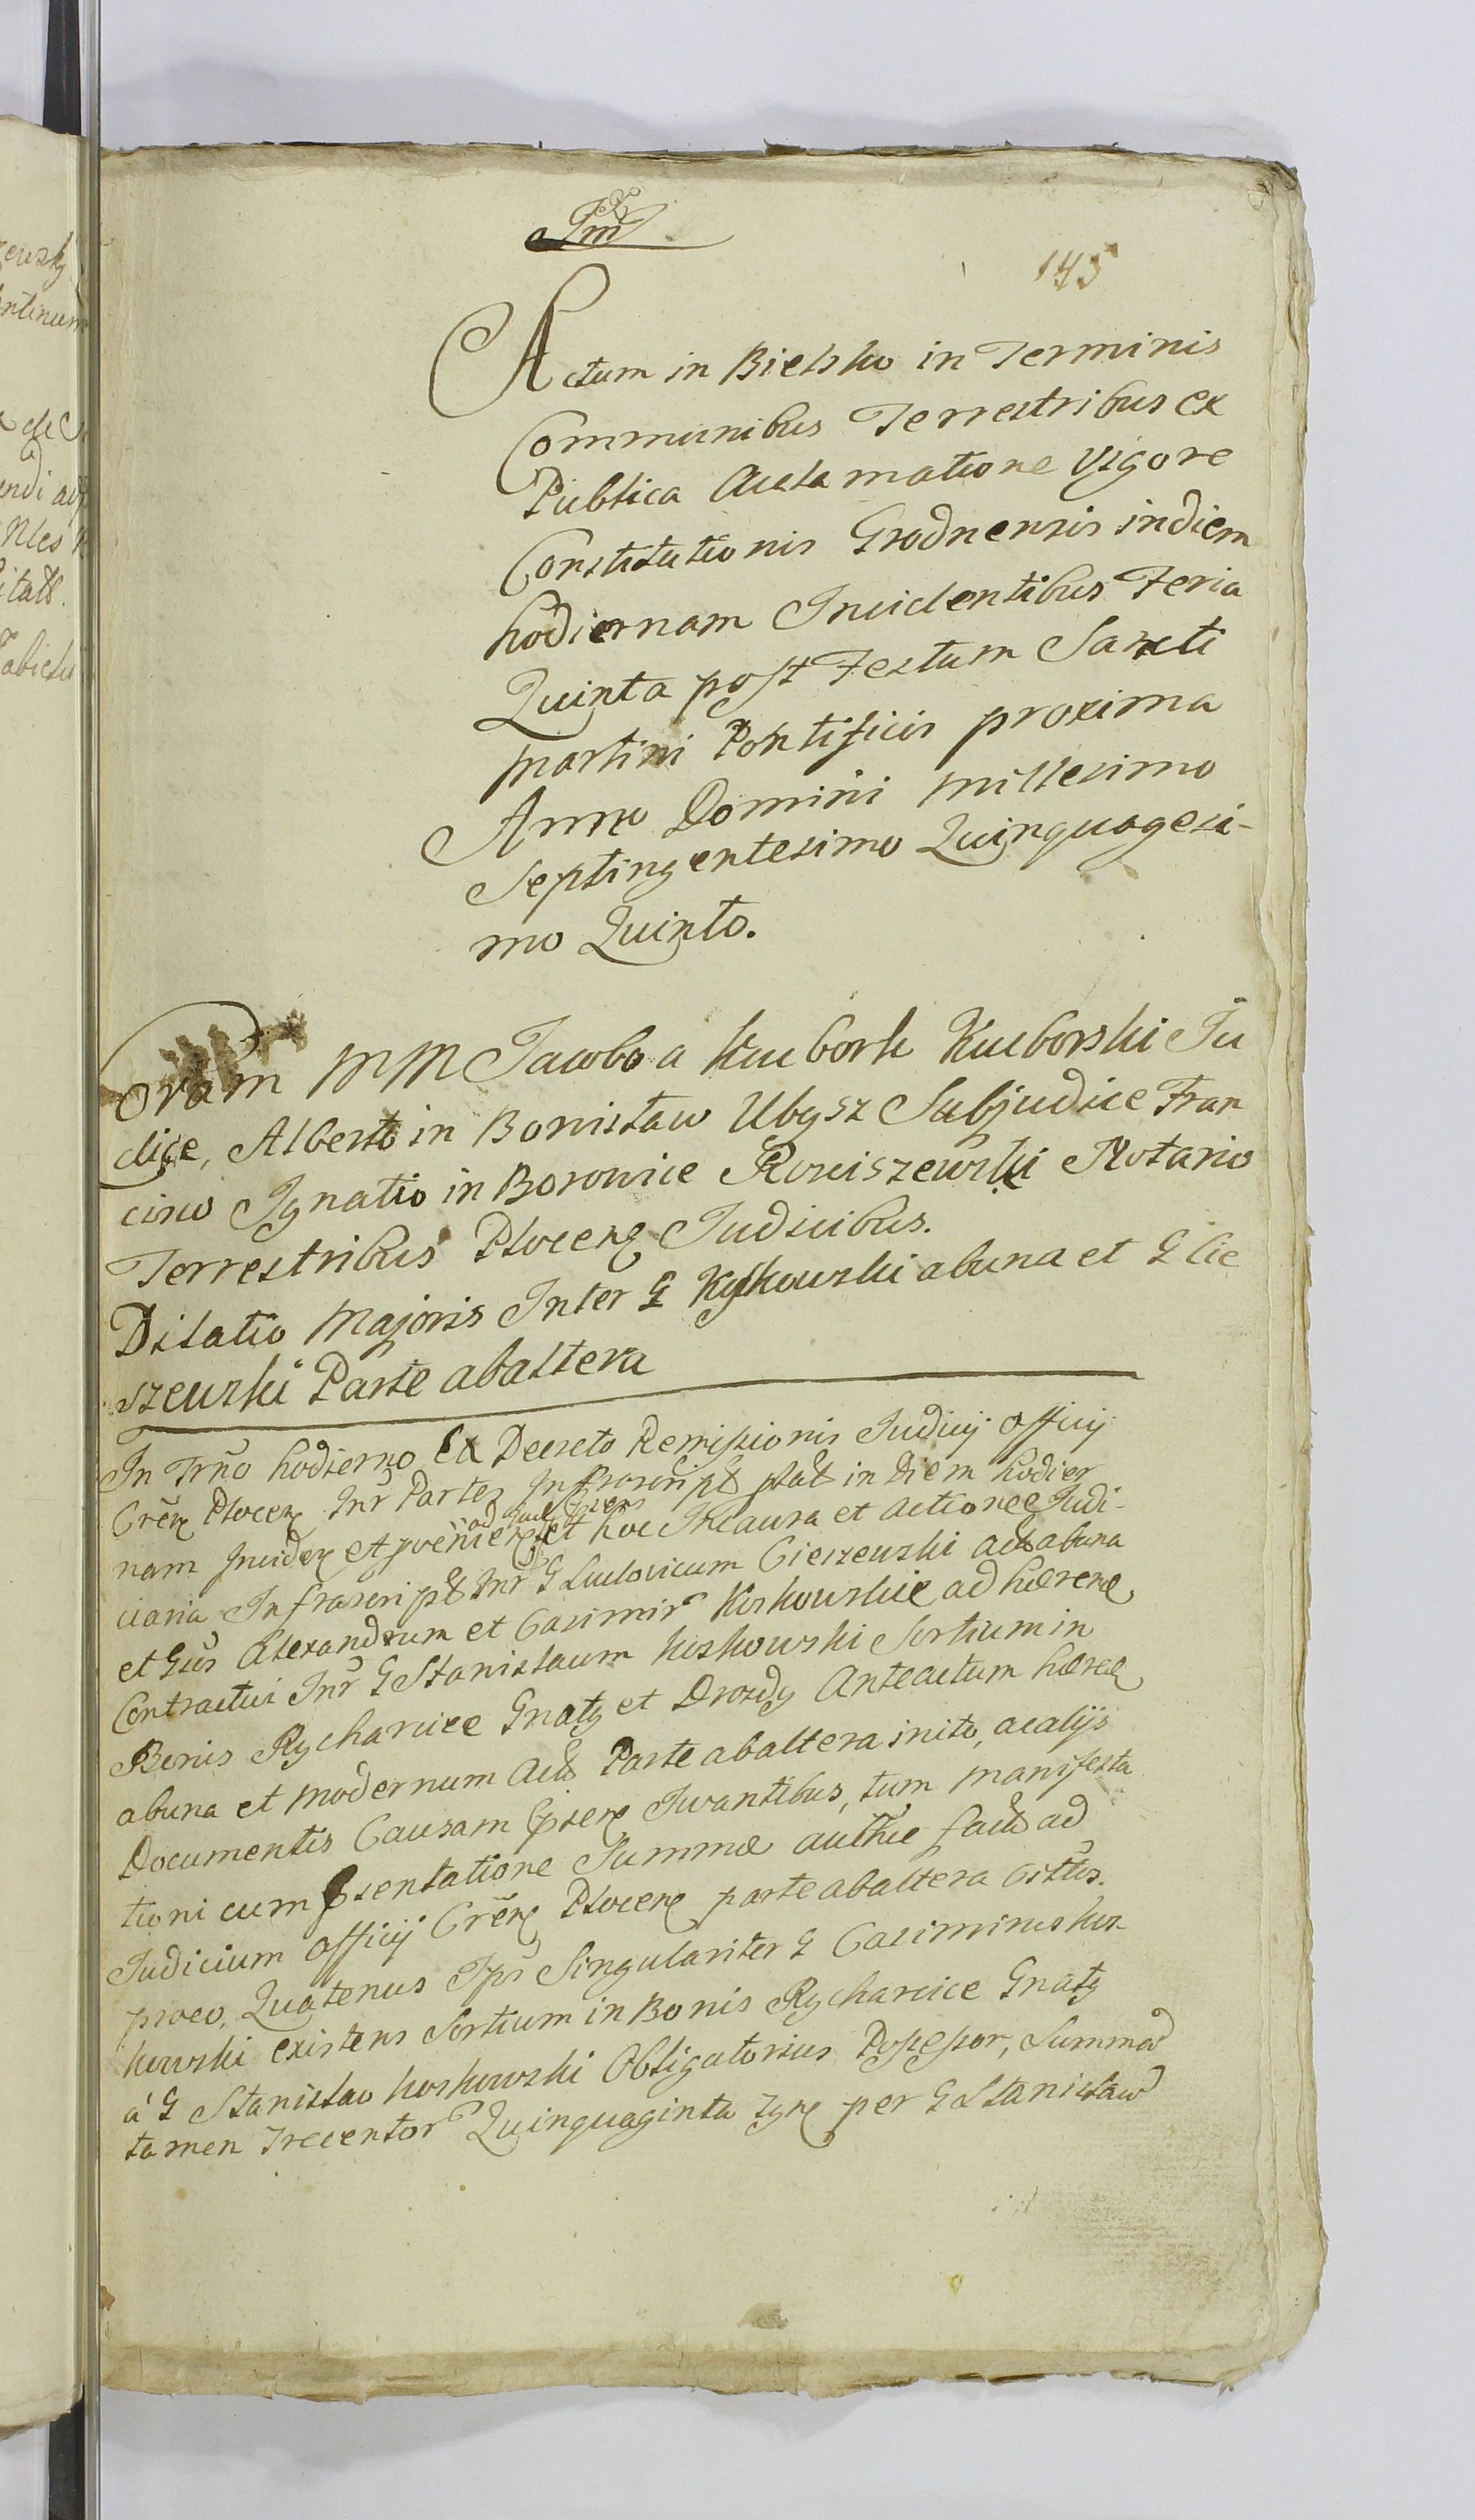 145
Actum in Bielsko in Terminis
Communibus Terrestribus ex
Publica Acclamatione Vigore
Constitutionis Grodnensis in diem
hodiernam Incidentibus Feria
Quinta post Festum Sancti
Martini Pontificis proxima
Anno Domini Millesimo
Septingentesimo Quinquagesi-
mo Quinto.
Coram MM Jacobo a Kucbork Kucborski Ju
dice, Alberto in Bonislaw Ubysz Subjudice Fran
cisco Ignatio in Borowice Rosciszewski Notario
Terrestribus Plocen Judicibus.
Dilatio Majoris Inter G Koskowski ab una et G Cie
szewski Parte ab altera
In Trno hodierno Ex Decreto Remissionis Judicij Officij
Cren Plocen Inr Partes Infrascript in Diem hodier
nam Inciden et ad hoc In Causa et actione Judi-
ciaria Infrascript Inr G Ludovicum Cieszewski act ab una
et Gus Alexandrum et Casimir Koskowskie adhaeren
Contractui Inr G Stanislaum Koskowski Sortium in
Bonis Rycharcice Gnaty et Drozdy Anteactum haere
ab una et modernum Act Parte ab altera inito, ac alijs
Documentis Causam Juvantibus, tum manifesta
tioni cum Summae authe fact ad
Judicium Officij Cren Plocen parte ab altera Cittos.
proco, Quatenus Ipsi Singulariter G Casimirus Kos-
kowski existens Sortium in Bonis Rycharcice Gnaty
á G Stanislao Koskowski Obligatorius Possessor, Summa
tamen Trecentor Quinquaginta per G Stanislaw